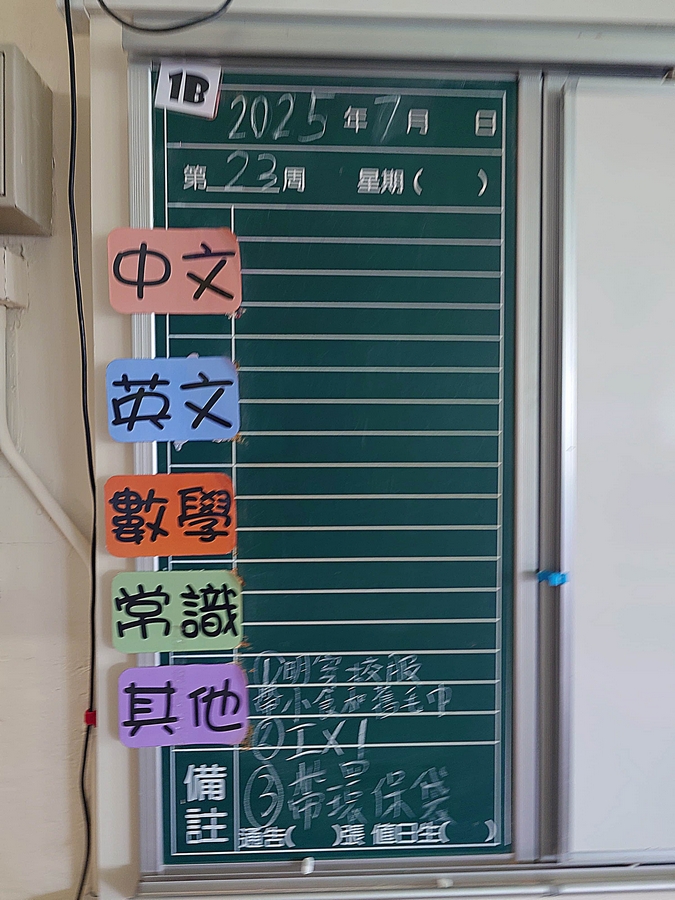 1B
2025年7月 日
第23周 星期( )
中文
英文
數學
常識
其他
①明穿校服
帶小食和舊毛巾
②IX1
③帶環保袋
備註
通告( )張 值日生( )